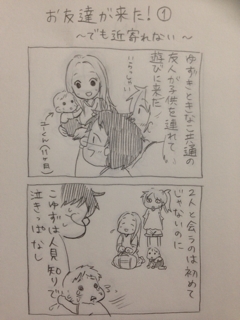 お友達が来た!①
~でも近寄れない~
ゆずきときなこ共通の
友人が子供を連れて
遊びに来た
いらっしゃい
2人と会うのは初めて
じゃないのに
こゆずは人見知りで
泣きっぱなし